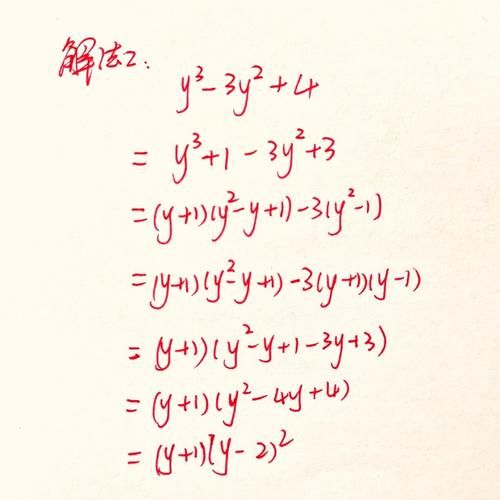 解法2:
y³-3y²+4
= y³+1-3y²+3
=(y+1)(y²-y+1)-3(y²-1)
=(y+1)(y²-y+1)-3(y+1)(y-1)
= (y+1)(y²-y+1-3y+3)
= (y+1)(y²-4y+4)
= (y+1)(y-2)²